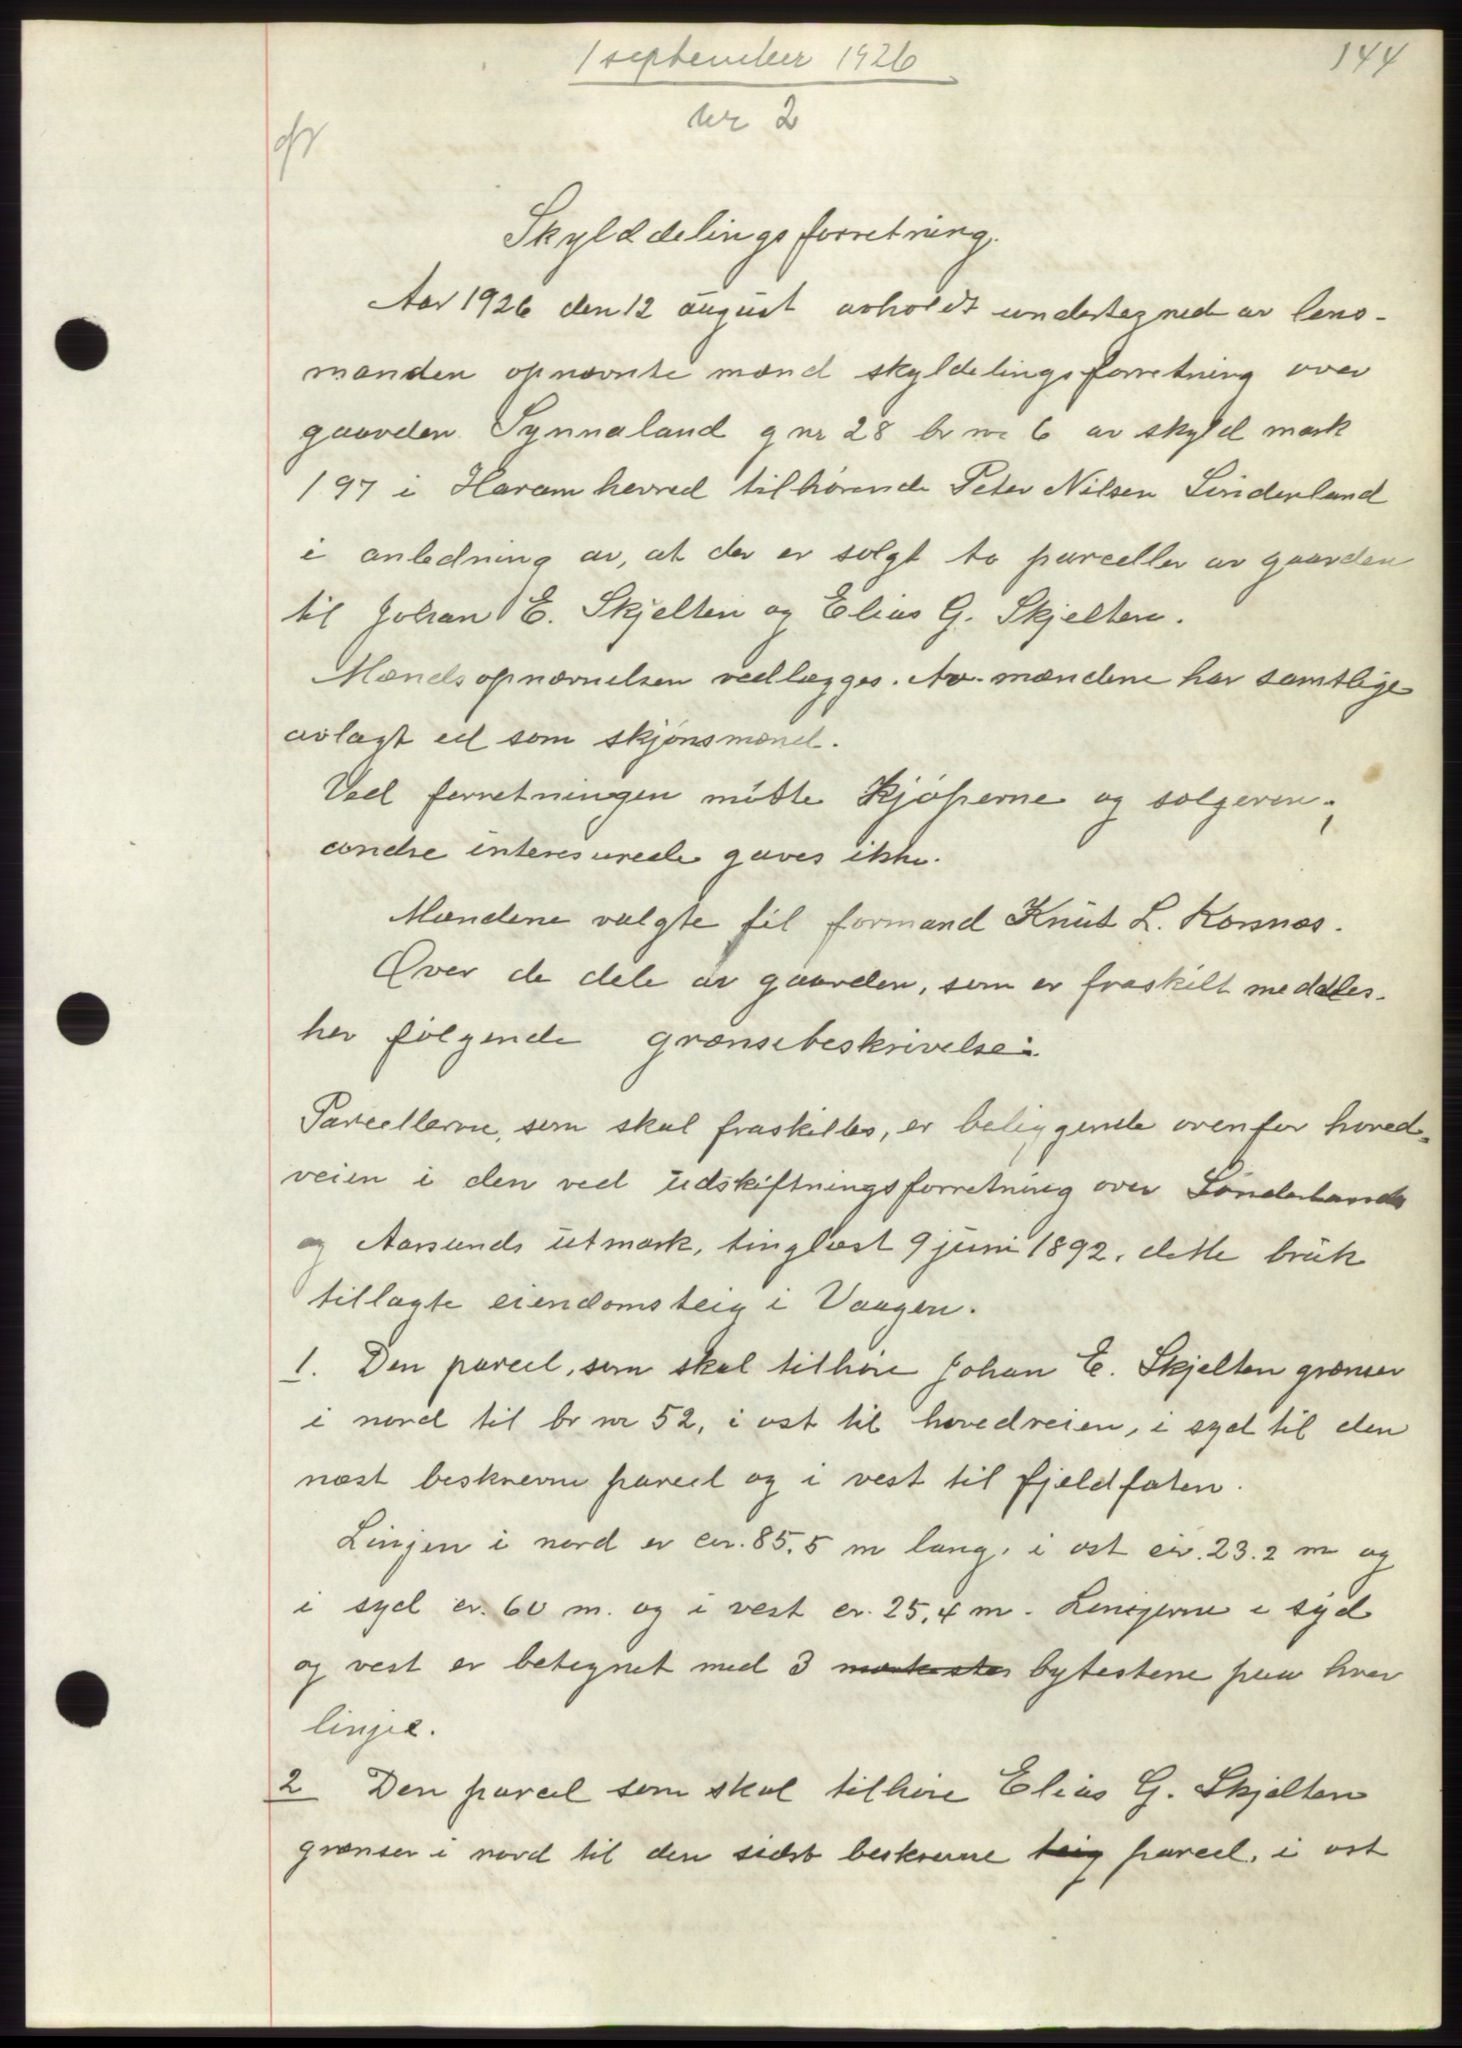 1 september 1926
144
nr 2
Skylddelingsforretning.
Aar 1926 den 12 august avholdt undertegnede av lens-
manden opnævnte mænd skyldelingsforretning over
gaarden Synnaland g nr 28 br nr 6 av skyld mark
1 97 i Haram herred tilhørende Peter Nilsen Sünderland
i anledning av, at der er solgt to parceller av gaarden
til Johan E. Skjelten og Elias G. Skjelten.
Mændsopnævnelsen vedlægges. Av mændene har samtlige
avlagt ed som skjønsmænd.
Ved forretningen møtte Kjøperne og sælgeren;
andre interesserede gaves ikke.
Mændene valgte til formand Knut L. Korsnes.
Over de dele av gaarden, som er fraskilt meddeles
her følgende grænsebeskrivelse:
Parcellerne, som skal fraskilles, er beliggende ovenfor hoved-
veien i den ved utskiftningsforretning over Sünderlands
og Aarsunds utmark, tinglæst 9 juni 1892, dette bruk
tillagte eiendomsteig i Vaagen.
1. Den parcel, som skal tilhøre Johan E. Skjelten grænser
i nord til br nr 52, i øst til hovedveien, i syd til den
næst beskrevne parcel og i vest til fjeldfoten.
Linjen i nord er cir. 85,5 m lang, i øst cir. 23.2 m og
i syd cr. 60 m. og i vest cr. 25,4 m. Linjerne i syd
og vest er betegnet med 3 bytestene paa hver
linje.
2 Den parcel som skal tilhøre Elias G. Skjelten
grænser i nord til den sidst beskrevne teig parcel, i øst